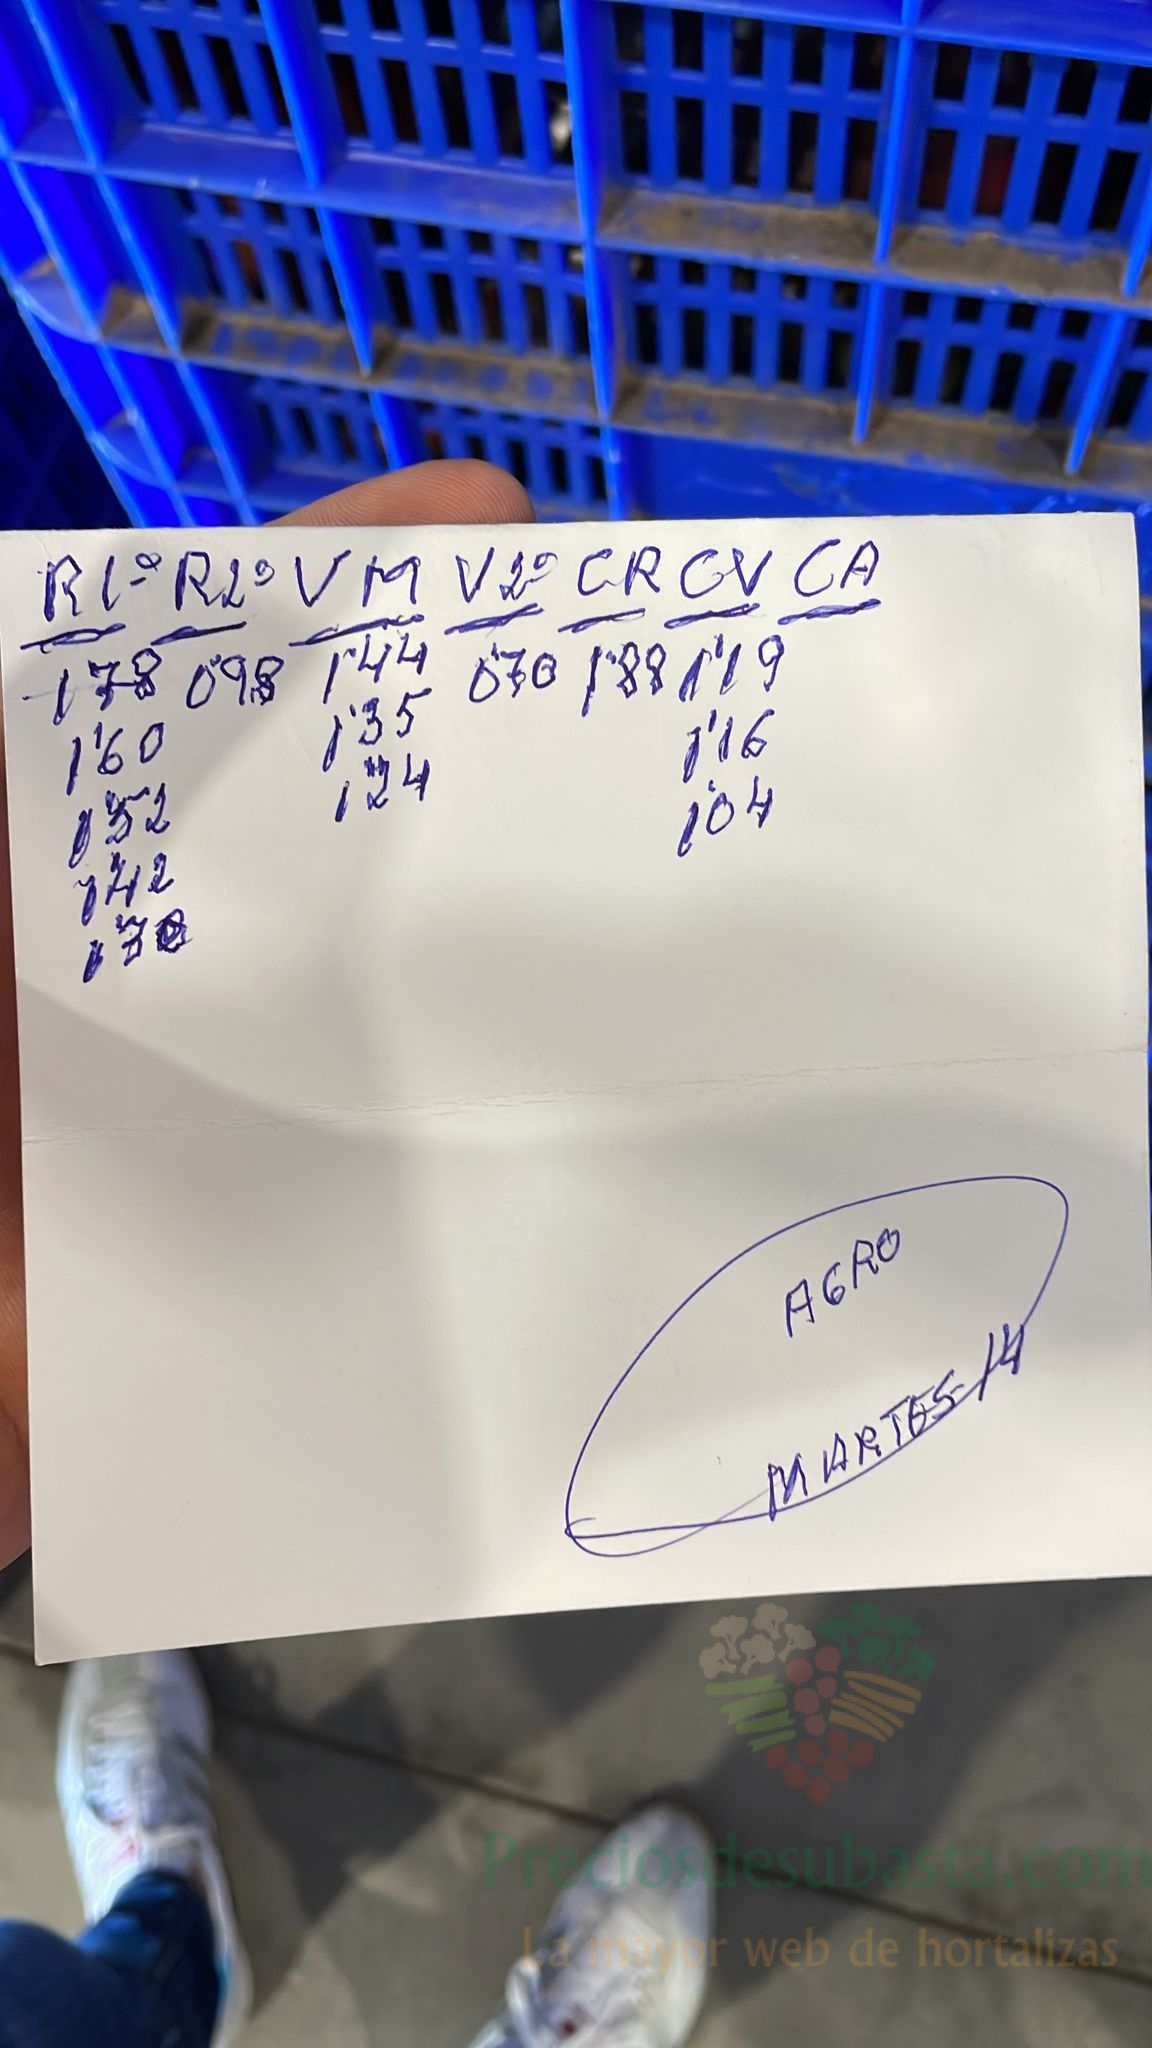 R1º R2º VM V2º CR CV CA
1'78 0'98 1'44 0'70 1'88 1'19
1'60 1'35 1'16
1'52 1'24 1'04
1'42
AGRO
MARTES 14
Preciosdesubasta.com
La mayor web de hortalizas